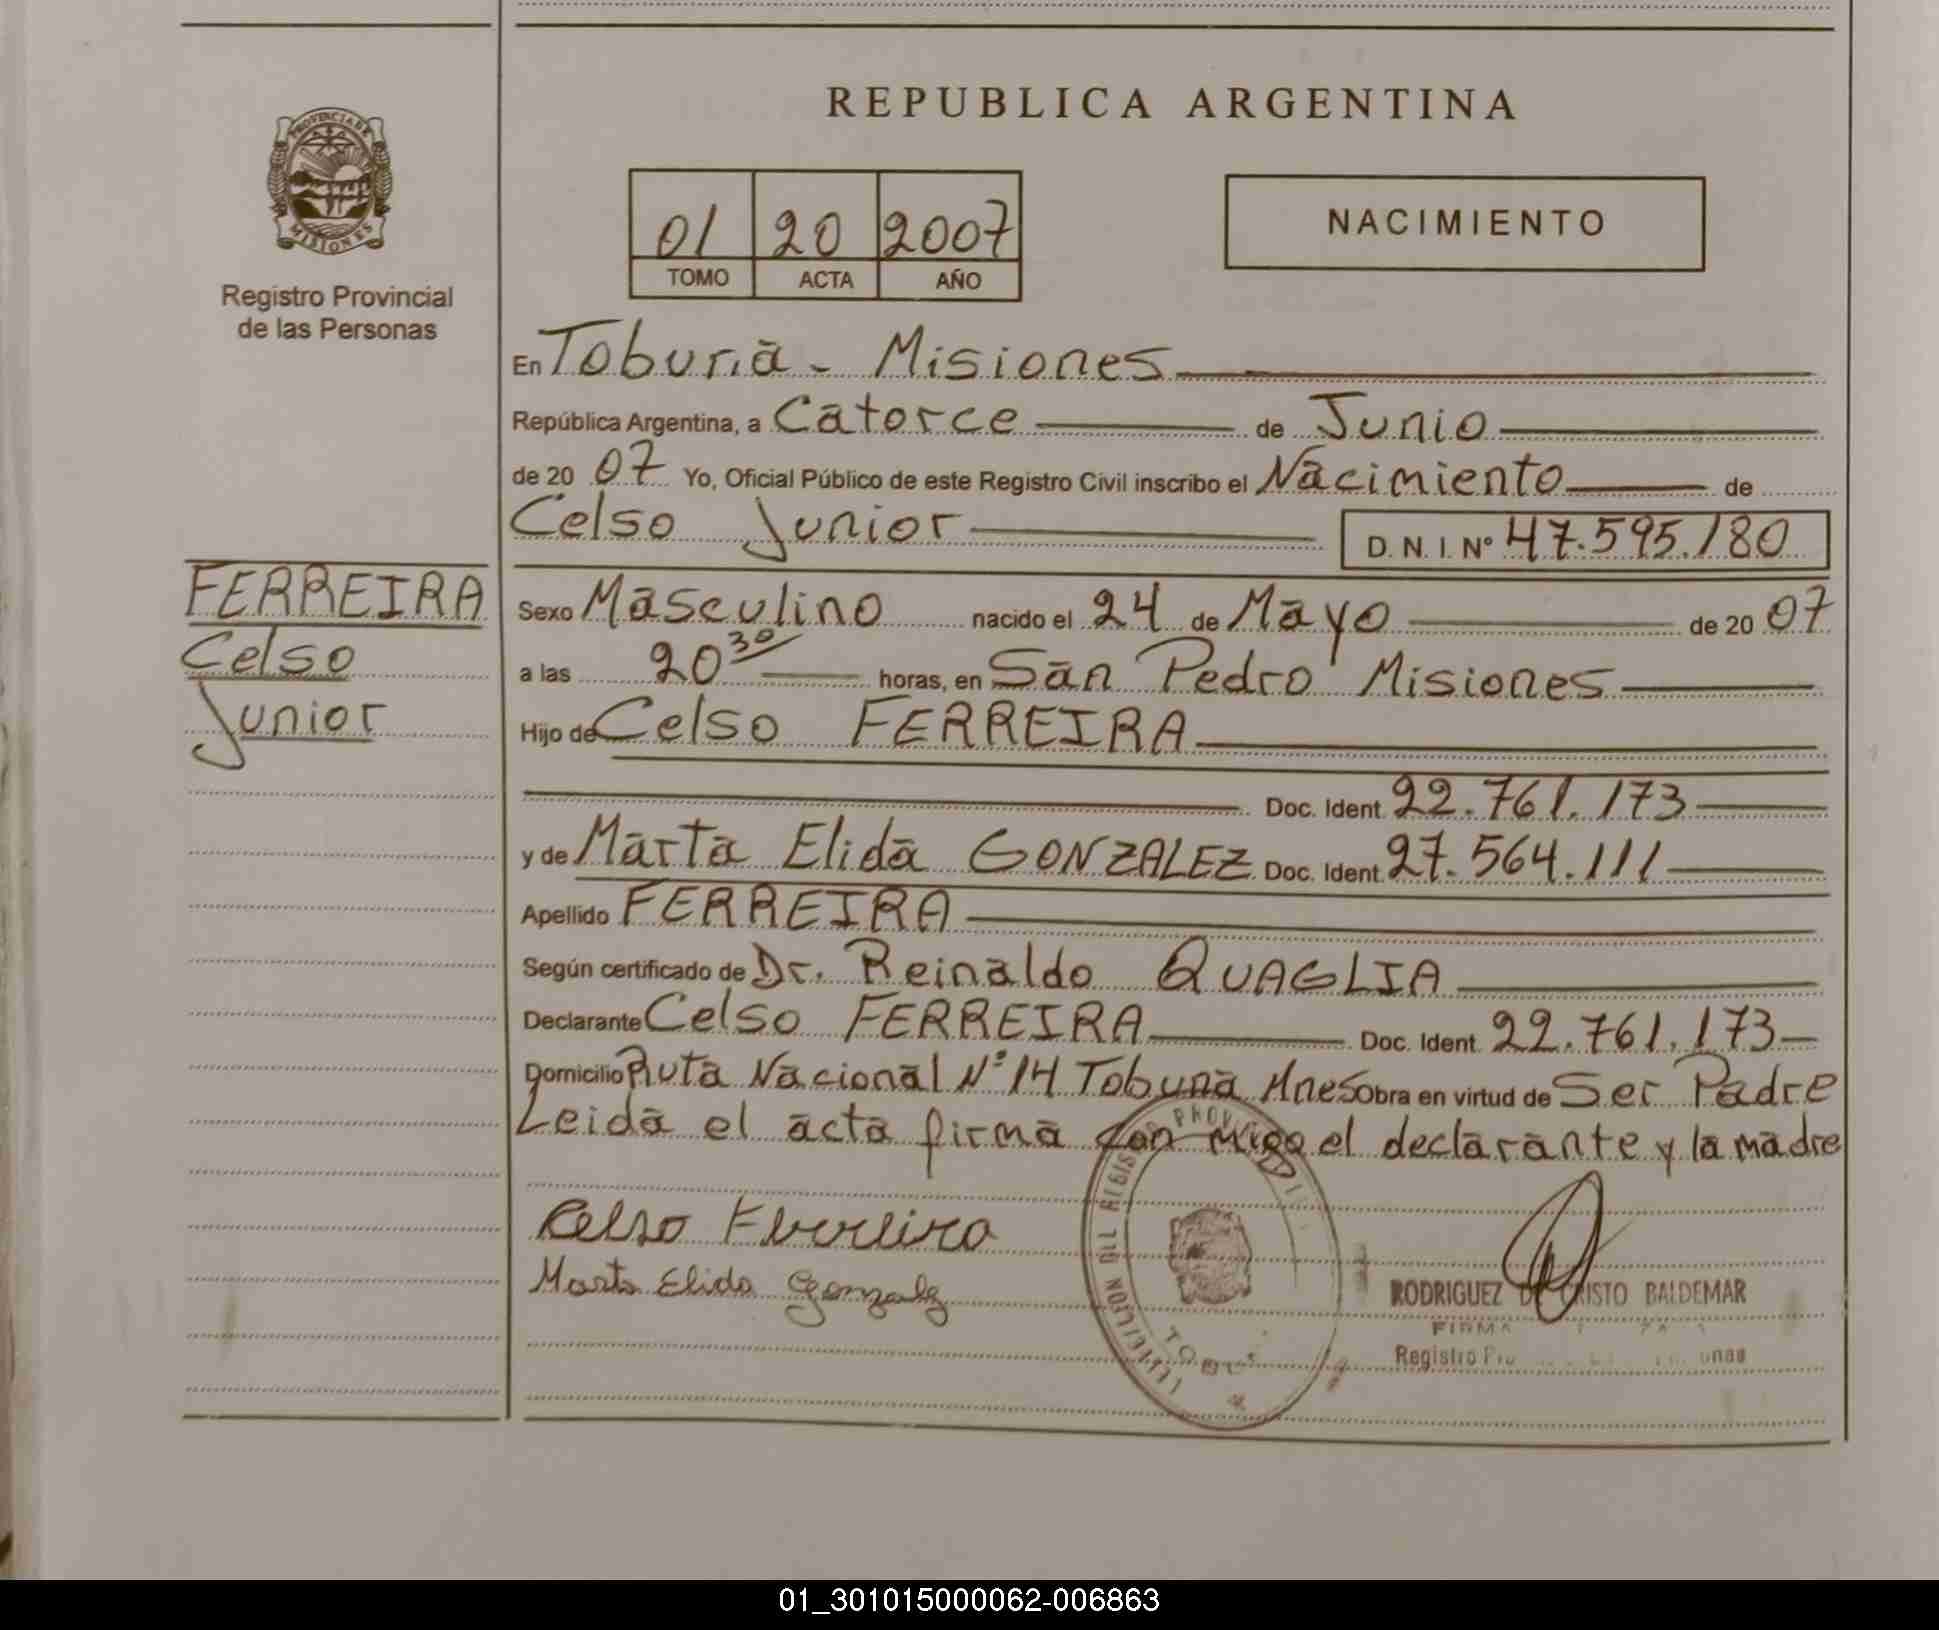 REPUBLICA ARGENTINA
PROVINCIA DE
MISIONES
Registro Provincial
de las Personas
01 20 2007
TOMO ACTA AÑO
NACIMIENTO
En Tobuna - Misiones
República Argentina, a Catorce de Junio
de 20 07 Yo, Oficial Público de este Registro Civil inscribo el Nacimiento de
Celso Junior D. N. I. Nº 47.595.180
FERREIRA
Celso
Junior
Sexo Masculino nacido el 24 de Mayo de 20 07
a las 20 30 horas, en San Pedro Misiones
Hijo de Celso FERREIRA
Doc. Ident. 22.761.173
y de Marta Elida GONZALEZ Doc. Ident. 27.564.111
Apellido FERREIRA
Según certificado de Dr. Reinaldo QUAGLIA
Declarante Celso FERREIRA Doc. Ident. 22.761.173
Domicilio Ruta Nacional Nº 14 Tobuna Mnes Obra en virtud de Ser Padre
Leida el acta firma con migo el declarante y la madre
Celso Ferreira
Marta Elida Gonzalez
RODRIGUEZ DE CRISTO BALDEMAR
FIRMA
Registro
01_301015000062-006863